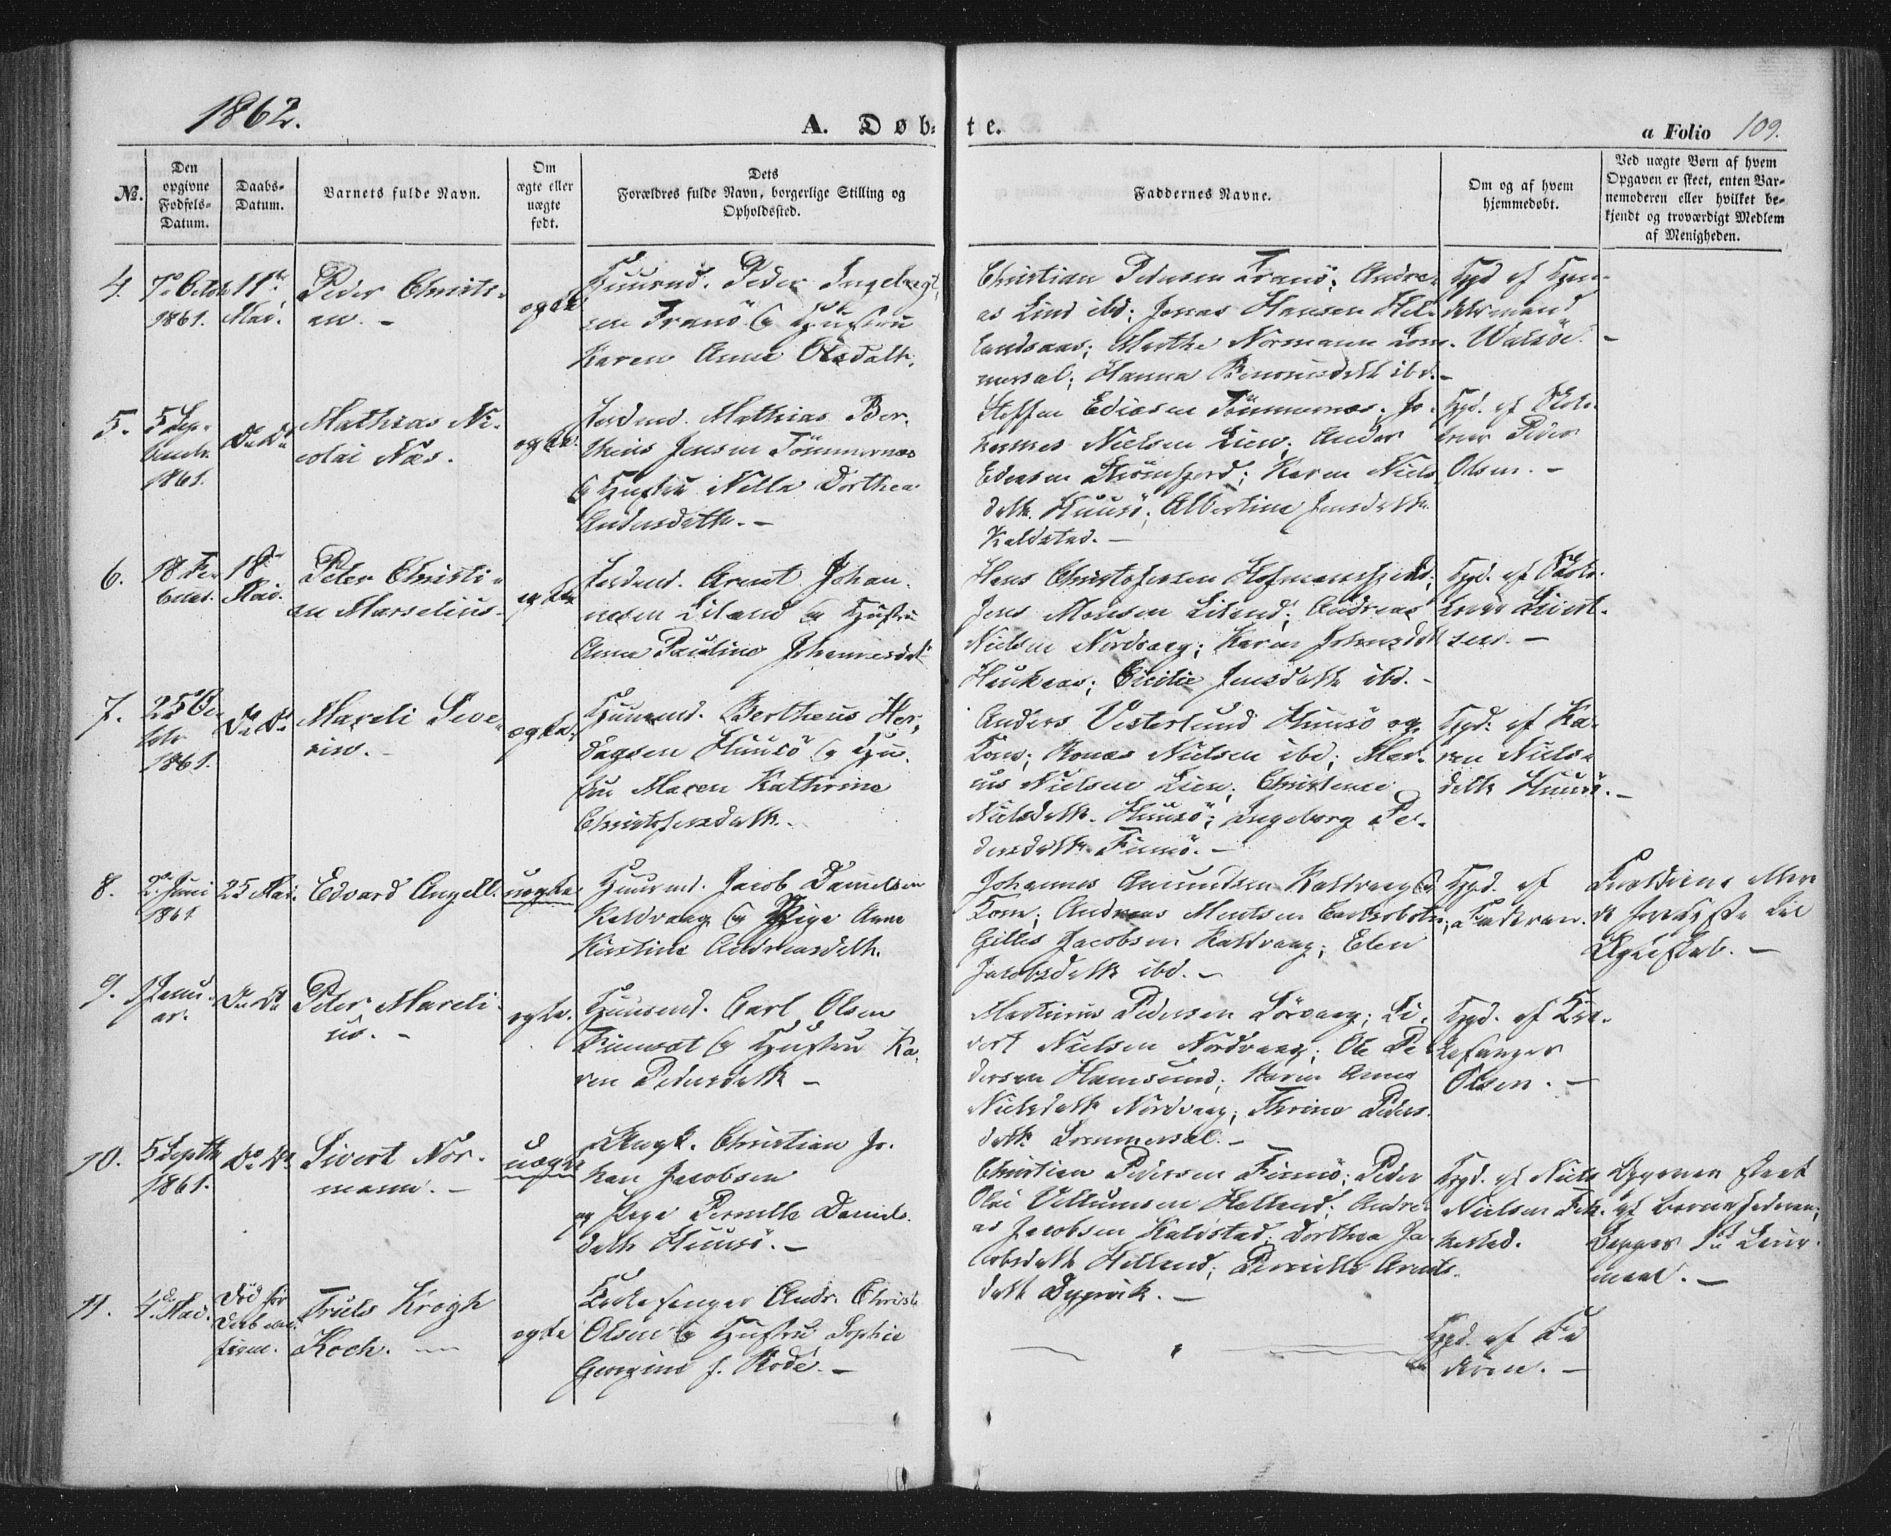 1862.
A. Døb-
te.
a Folio 109.
No.
Den
opgivne
Fødsels-
Datum.
Daabs-
Datum.
Barnets fulde Navn.
Om
ægte eller
uægte
født.
Dets
Forældres fulde Navn, borgerlige Stilling og
Opholdssted.
Faddernes Navne.
Om og af hvem
hjemmedøbt.
Ved uægte Børn af hvem
Opgaven er skeet, enten Bar-
nemoderen eller hvilket be-
kjendt og troværdigt Medlem
af Menigheden.
4.
7de Octob
1861.
11te
Mai.
Peder Christi-
an. -
ægte
Huusmd. Peder Ingebregt-
sen Tranö & Hustru
Karen Anna Olsdatt.
Christian Pedersen Tranö; Andre-
as Lind ibd; Jonas Hansen Hel-
landsaas; Marthe Normann Lom-
mersal; Hanna
ibd. -
Hjd af
Walsöe. -
5.
5 Sep-
tembr
1861.
Do Do
Mathias Ni-
colai Näs.
ægte.
Mathias Ber-
theus Jensen Tömmernæs
& Hustru Nella Dorthea
Andersdatt. -
Steffen Ediasen Tömmernæs; Jo-
hannes Nielsen Lien; Anders
Ediasen Strömfjord; Karen Niels
datt. Huusö; Albertine Jensdatt.
Kaldstad. -
Hjd. af
Peder
Olsen. -
6.
18 Fe-
bruar.
18de
Mai.
Peter Christi-
an Marselius.
ægte
Arent Johan-
nesen Liland & Hustru
Anna Pauline Johannesdat
Hans Christofersen
Jens Monsen Liland; Andreas
Nielsen Nordvaag; Karen Johansdatt
; Cicilie Jensdatt ibd. -
Hjd. af
Sivert-
sen. -
7.
25 Oc-
tobr
1861.
Do Do
Mareli Seve-
rin. -
ægte.
Huusmd. Bertheus Her-
dagsen Huusö & Hu-
stru Maren Kathrine
Christofersdatt.
Anders Vesterlund Huusö og
Kone; Jonas Nielsen ibd; Mar-
ius Nielsen Lien; Christence
Nielsdatt. Huusö; Ingeborg Pe-
dersdatt Finnö. -
Hjd: af Ka-
ren Niels-
datt Huusö. -
8.
2. Juni
1861
25 Mai.
Edvard Angell.
uægte
Huusmd. Jacob Danielsen
Kaldvaag & Pige Anne
Kirstine Andreasdatt.
Johannes Amundsen Kaldvaag &
Kone; Andreas Mentsen
Gilles Jacobsen Kaldvaag; Elen
Jacobsdatt ibd. -
Hjd. af
Faderen.
Forældrene
til
Ægteskab. -
9.
Janu-
ar.
Do Do
Peter Mareli-
us. -
ægte.
Huusmd. Carl Olsen
& Hustru Ka-
ren Pedersdatt -
Martinus Pedersen Sörvaag; Si-
vert Nielsen Nordvaag; Ole Pe-
dersen Hamsund; Karen Anna
Nielsdatt Nordvaag; Thrine Peders-
datt Lommersal. -
Hjd. af Kir-
kesanger
Olsen. -
10.
5 Septbr
1861.
Do Do
Sivert Nor-
mann. -
uægte
Ungk. Christian Jo-
han Jacobsen
og Pige Pernille Daniels-
datt Huusö. -
Christian Pedersen Finnö; Peder
Olai Villumsen Helland; Andre-
as Jacobsen Kaldstad; Dorthea Ja-
cobsdatt Helland; Pernille Arents-
datt Dypvik. -
Hjd. af Niels
Nielsen
Opgaven skeet
af Barnefaderen;
Begges
Leier-
maal. -
11.
4de Mai.
Död för
Daab
Truls Krogh
Koch. -
ægte
Kirkesanger Andr. Christ.
Olsen & Hustru Sophie
Georgine f. Rode. -
Hjd. af Fa
deren. -